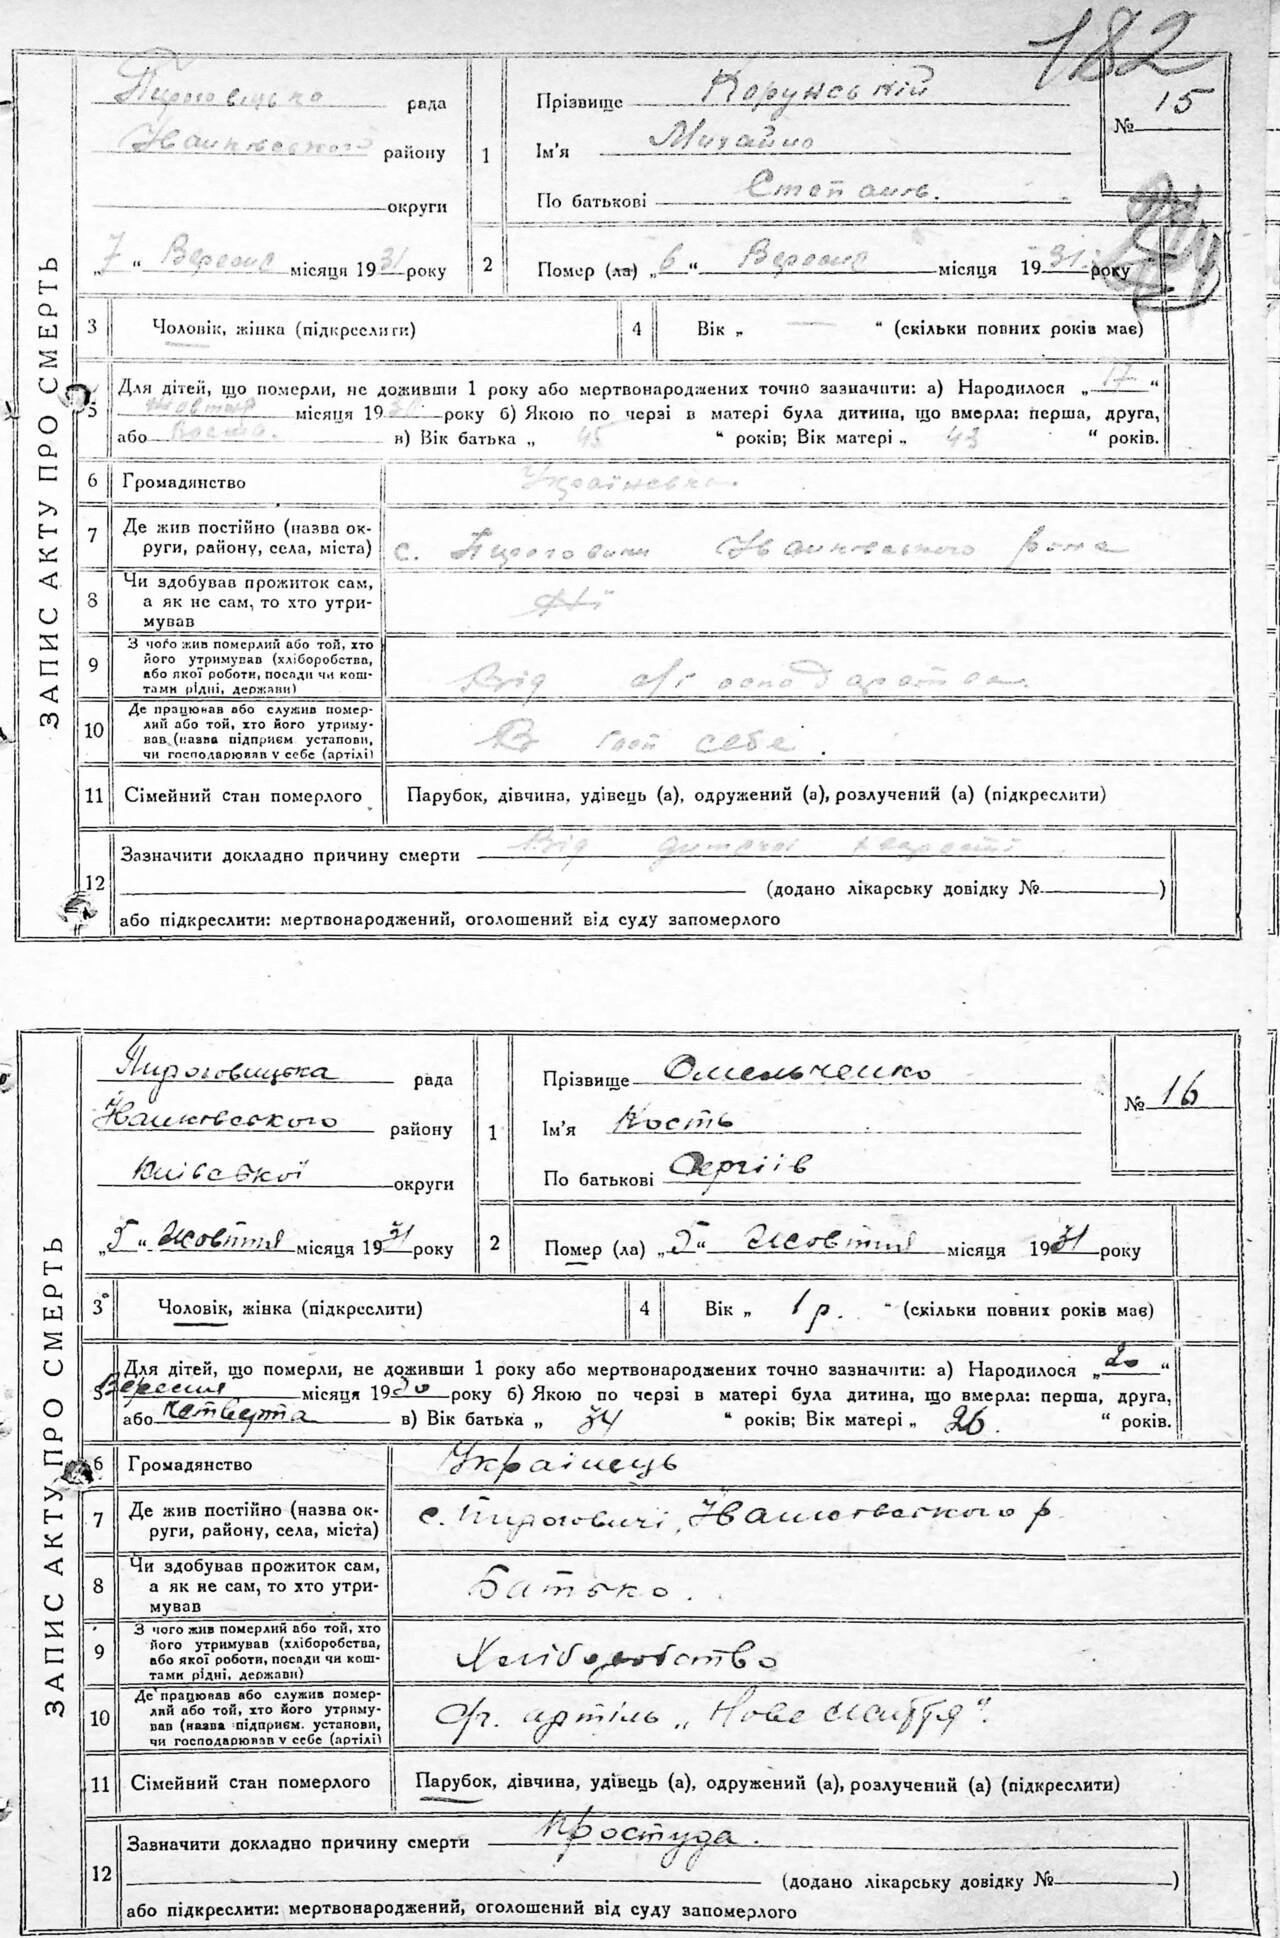 182
ЗАПИС АКТУ ПРО СМЕРТЬ
Пироговицька рада
Іванківського району
округи
„7“ Вересня місяця 1931 року
1
Прізвище Корунський
Ім'я Михайло
По батькові Степанів.
№ 15
2
Помер (ла) „6“ Вересня місяця 1931 року
3 Чоловік, жінка (підкреслити)
4 Вік „ — “ (скільки повних років має)
5 Для дітей, що померли, не доживши 1 року або мертвонароджених точно зазначити: а) Народилося „17“
жовтня місяця 1930 року б) Якою по черзі в матері була дитина, що вмерла: перша, друга,
або восьма. в) Вік батька „ 45 “ років; Вік матері „ 43 “ років.
6 Громадянство Українська
7 Де жив постійно (назва ок-
руги, району, села, міста) с. Пироговичи Іванковського рона
8 Чи здобував прожиток сам,
а як не сам, то хто утри-
мував
Ні
9 З чого жив померлий або той, хто
його утримував (хліборобства,
або якої роботи, посади чи кош-
тами рідні, держави)
Від с/господарства.
10 Де працював або служив помер-
лий або той, хто його утриму-
вав (назва підприєм установи,
чи господарював у себе (артілі)
В себе.
11 Сімейний стан померлого Парубок, дівчина, удівець (а), одружений (а), розлучений (а) (підкреслити)
12 Зазначити докладно причину смерти Від дитячої
(додано лікарську довідку № )
або підкреслити: мертвонароджений, оголошений від суду запомерлого
ЗАПИС АКТУ ПРО СМЕРТЬ
Пироговицька рада
Іванковського району
Київської округи
„5“ Жовтня місяця 1931 року
1
Прізвище Омельченко
Ім'я Кость
По батькові Сергіїв
№ 16
2
Помер (ла) „5“ Жовтня місяця 1931 року
3 Чоловік, жінка (підкреслити)
4 Вік „ 1 р. “ (скільки повних років має)
5 Для дітей, що померли, не доживши 1 року або мертвонароджених точно зазначити: а) Народилося „20“
Вересня місяця 1930 року б) Якою по черзі в матері була дитина, що вмерла: перша, друга,
або четверта в) Вік батька „ 34 “ років; Вік матері „ 26. “ років.
6 Громадянство Українець
7 Де жив постійно (назва ок-
руги, району, села, міста) с. Пироговичі, Іванковського р.
8 Чи здобував прожиток сам,
а як не сам, то хто утри-
мував
Батько.
9 З чого жив померлий або той, хто
його утримував (хліборобства,
або якої роботи, посади чи кош-
тами рідні, держави)
Хліборобство
10 Де працював або служив помер-
лий або той, хто його утриму-
вав (назва підприєм. установи,
чи господарював у себе (артілі)
артіль „Нове життя“.
11 Сімейний стан померлого Парубок, дівчина, удівець (а), одружений (а), розлучений (а) (підкреслити)
12 Зазначити докладно причину смерти Простуда.
(додано лікарську довідку № )
або підкреслити: мертвонароджений, оголошений від суду запомерлого